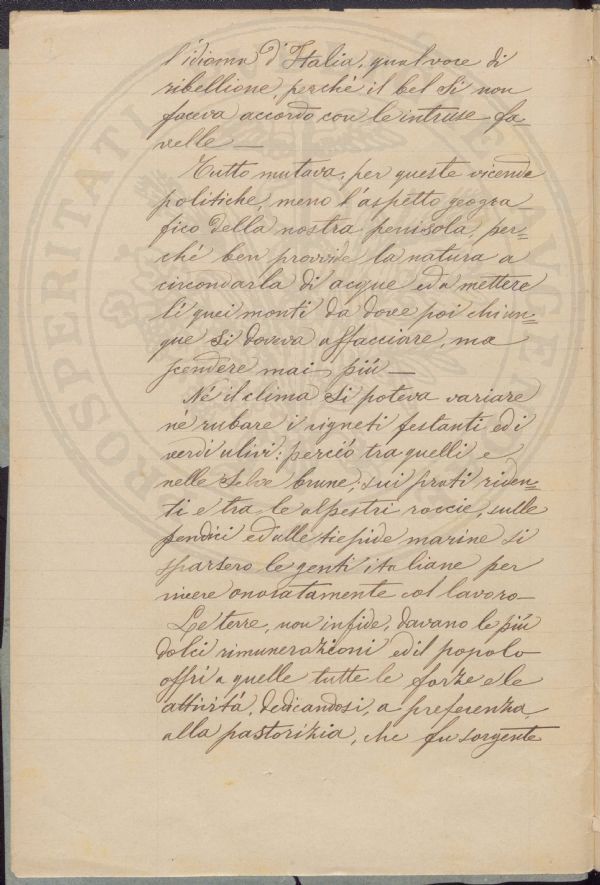 l'idioma d'Italia, qual voce di
ribellione, perchè il bel Sì non
faceva accordo con le intruse fa=
velle —
Tutto mutava, per queste vicende
politiche, meno l'aspetto geogra
fico della nostra penisola, per=
chè ben provvide la natura a
circondarla di acque ed a mettere
lì quei monti da dove poi chiun=
que si doveva affacciare, ma
scendere mai più —
Nè il clima si poteva variare
nè rubare i vigneti festanti ed i
verdi ulivi: perciò tra quelli e
nelle selve brune, sui prati riden=
ti e tra le alpestri roccie, sulle
pendici ed alle tiepide marine si
sparsero le genti italiane per
vivere onoratamente col lavoro —
Le terre, non infide, davano le più
dolci rimunerazioni ed il popolo
offrì a quelle tutte le forze e le
attività, dedicandosi, a preferenza,
alla pastorizia, che fu sorgente
PROSPERITATI
AVGET